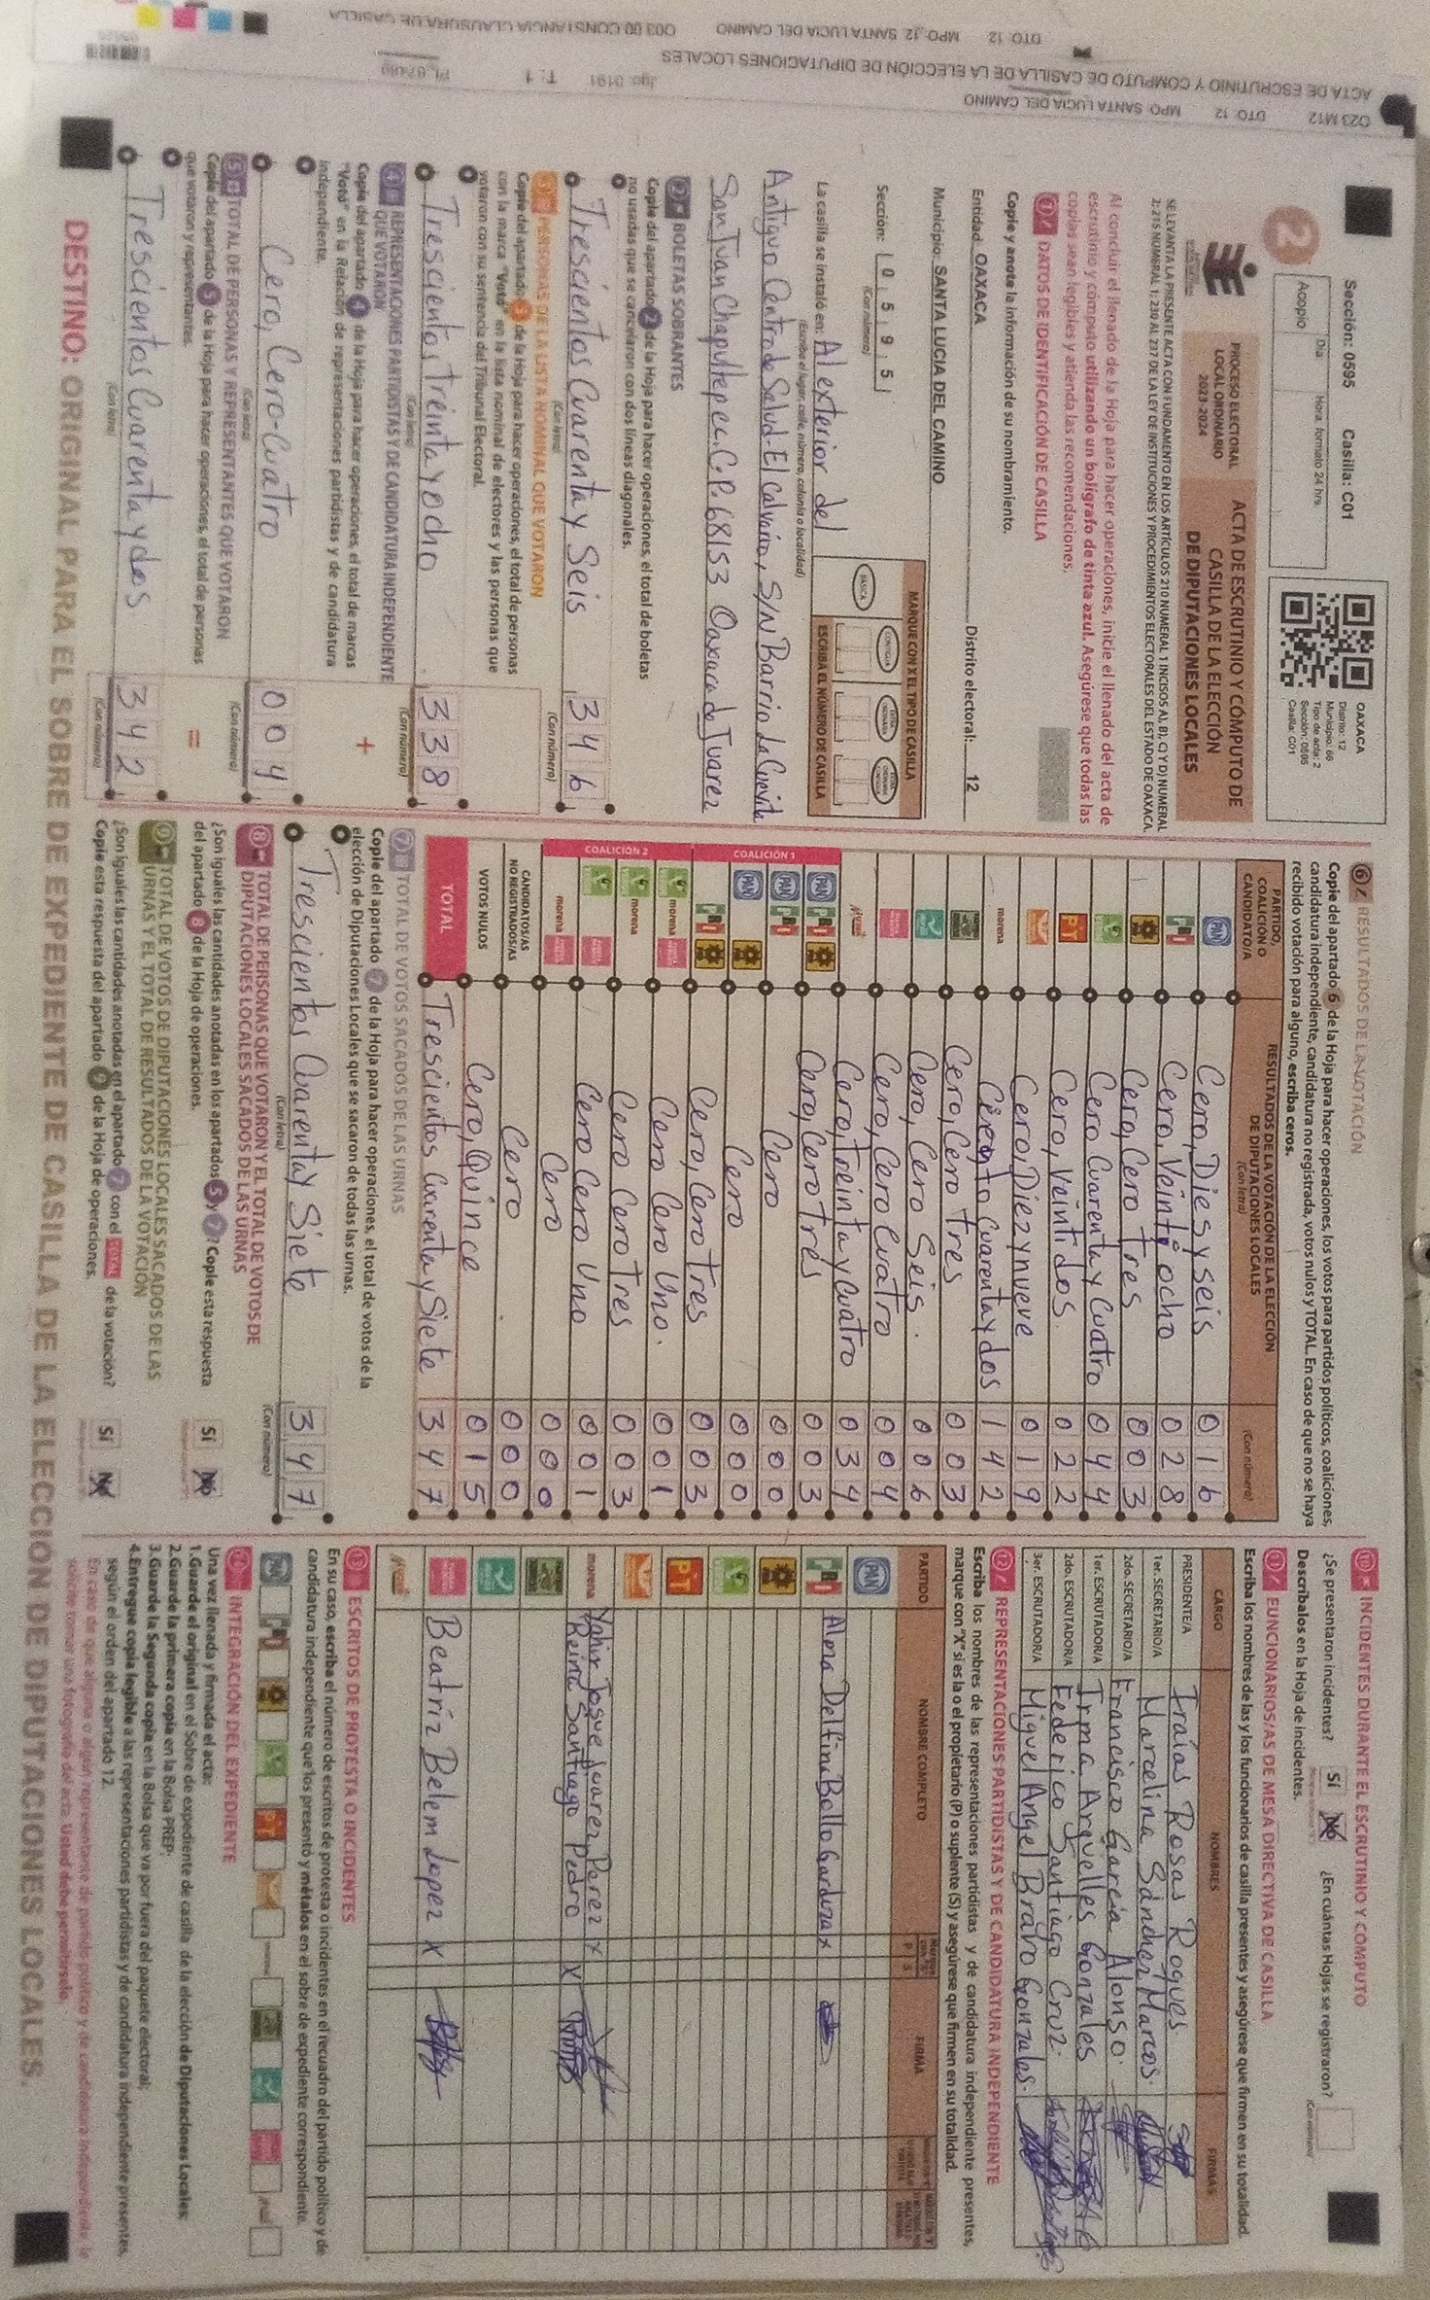 023 M12 DTO. 12 MPO. SANTA LUCIA DEL CAMINO
ACTA DE ESCRUTINIO Y CÓMPUTO DE CASILLA DE LA ELECCIÓN DE DIPUTACIONES LOCALES
DTO. 12 MPO. 12. SANTA LUCIA DEL CAMINO
Sección: 0595 Casilla: C01
2
Día Hora: formato 24 hrs.
Acopio
OAXACA
Distrito: 12
Municipio: 66
Tipo de acta: 2
Sección: 0595
Casilla: C01
PROCESO ELECTORAL
LOCAL ORDINARIO
2023-2024
ACTA DE ESCRUTINIO Y CÓMPUTO DE
CASILLA DE LA ELECCIÓN
DE DIPUTACIONES LOCALES
SE LEVANTA LA PRESENTE ACTA CON FUNDAMENTO EN LOS ARTÍCULOS 210 NUMERAL 1 INCISOS A), B), C) Y D) NUMERAL
2; 215 NUMERAL 1; 230 AL 237 DE LA LEY DE INSTITUCIONES Y PROCEDIMIENTOS ELECTORALES DEL ESTADO DE OAXACA.
Al concluir el llenado de la Hoja para hacer operaciones, inicie el llenado del acta de
escrutinio y cómputo utilizando un bolígrafo de tinta azul. Asegúrese que todas las
copias sean legibles y atienda las recomendaciones.
1 DATOS DE IDENTIFICACIÓN DE CASILLA
Copie y anote la información de su nombramiento.
Entidad: OAXACA Distrito electoral: 12
Municipio: SANTA LUCIA DEL CAMINO
Sección: 0 5 9 5
(Con número)
MARQUE CON X EL TIPO DE CASILLA
BÁSICA CONTIGUA
ESCRIBA EL NÚMERO DE CASILLA
La casilla se instaló en: Al exterior del
(Escriba el lugar, calle, número, colonia o localidad)
Antiguo Centro de Salud-El Calvario, S/N Barrio La Cuevita
San Juan Chapultepec. C.P. 68153 Oaxaca de Juarez
2 BOLETAS SOBRANTES
Copie del apartado 2 de la Hoja para hacer operaciones, el total de boletas
no usadas que se cancelaron con dos líneas diagonales.
Trescientos Cuarenta y Seis 3 4 6
(Con letra) (Con número)
3 PERSONAS DE LA LISTA NOMINAL QUE VOTARON
Copie del apartado 3 de la Hoja para hacer operaciones, el total de personas
con la marca "Votó" en la lista nominal de electores y las personas que
votaron con su sentencia del Tribunal Electoral.
Trescientos Treinta y ocho 3 3 8
(Con letra) (Con número)
4 REPRESENTACIONES PARTIDISTAS Y DE CANDIDATURA INDEPENDIENTE
QUE VOTARON
Copie del apartado 4 de la Hoja para hacer operaciones, el total de marcas
"Votó" en la Relación de representaciones partidistas y de candidatura
independiente.
+
Cero, Cero-Cuatro 0 0 4
(Con letra) (Con número)
5 TOTAL DE PERSONAS Y REPRESENTANTES QUE VOTARON
Copie del apartado 5 de la Hoja para hacer operaciones, el total de personas
que votaron y representantes.
=
Trescientos Cuarenta y dos 3 4 2
(Con letra) (Con número)
6 RESULTADOS DE LA VOTACIÓN
Copie del apartado 6 de la Hoja para hacer operaciones, los votos para partidos políticos, coaliciones,
candidatura independiente, candidatura no registrada, votos nulos y TOTAL. En caso de que no se haya
recibido votación para alguno, escriba ceros.
PARTIDO, COALICIÓN O CANDIDATO/A
RESULTADOS DE LA VOTACIÓN DE LA ELECCIÓN DE DIPUTACIONES LOCALES
(Con letra) (Con número)
PAN Cero, Dies y seis 0 1 6
PRI Cero, Veinti ocho 0 2 8
Cero, Cero Tres 0 0 3
Cero Cuarenta y Cuatro 0 4 4
PT Cero, Veintidos. 0 2 2
Cero, Diez y nueve 0 1 9
morena Ciento Cuarenta y dos 1 4 2
Cero, Cero Tres 0 0 3
Cero, Cero Seis. 0 0 6
Cero, Cero Cuatro 0 0 4
Cero, Treinta y Cuatro 0 3 4
COALICIÓN 1
PAN PRI Cero, Cero Tres 0 0 3
PAN PRI Cero 0 0 0
PAN Cero 0 0 0
PRI Cero, Cero Tres 0 0 3
COALICIÓN 2
morena Cero Cero Uno. 0 0 1
morena Cero Cero Tres 0 0 3
Cero Cero Uno 0 0 1
morena Cero 0 0 0
CANDIDATOS/AS NO REGISTRADOS/AS Cero 0 0 0
VOTOS NULOS Cero, Quince 0 1 5
TOTAL Trescientos Cuarenta y Siete 3 4 7
7 TOTAL DE VOTOS SACADOS DE LAS URNAS
Copie del apartado 7 de la Hoja para hacer operaciones, el total de votos de la
elección de Diputaciones Locales que se sacaron de todas las urnas.
Trescientos Cuarenta y Siete 3 4 7
(Con letra) (Con número)
8 TOTAL DE PERSONAS QUE VOTARON Y EL TOTAL DE VOTOS DE
DIPUTACIONES LOCALES SACADOS DE LAS URNAS
¿Son iguales las cantidades anotadas en los apartados 5 y 7? Copie esta respuesta
del apartado 8 de la Hoja de operaciones.
Sí No
9 TOTAL DE VOTOS DE DIPUTACIONES LOCALES SACADOS DE LAS
URNAS Y EL TOTAL DE RESULTADOS DE LA VOTACIÓN
¿Son iguales las cantidades anotadas en el apartado 7 con el TOTAL de la votación?
Copie esta respuesta del apartado 9 de la Hoja de operaciones.
Sí No
10 INCIDENTES DURANTE EL ESCRUTINIO Y CÓMPUTO
¿Se presentaron incidentes? Sí No ¿En cuántas Hojas se registraron?
Descríbalos en la Hoja de incidentes.
11 FUNCIONARIOS/AS DE MESA DIRECTIVA DE CASILLA
Escriba los nombres de las y los funcionarios de casilla presentes y asegúrese que firmen en su totalidad.
CARGO NOMBRES FIRMAS
PRESIDENTE/A Iraías Rosas Roques
1er. SECRETARIO/A Marcelina Sánchez Marcos.
2do. SECRETARIO/A Francisco García Alonso.
1er. ESCRUTADOR/A Irma Arguelles Gonzales
2do. ESCRUTADOR/A Federico Santiago Cruz.
3er. ESCRUTADOR/A Miguel Angel Bravo Gonzales.
12 REPRESENTACIONES PARTIDISTAS Y DE CANDIDATURA INDEPENDIENTE
Escriba los nombres de las representaciones partidistas y de candidatura independiente presentes,
marque con "X" si es la o el propietario (P) o suplente (S) y asegúrese que firmen en su totalidad.
PARTIDO NOMBRE COMPLETO P S FIRMA
PAN
PRI Alma Delfina Bello Garduza x
PT
morena Yahir Josue Juarez Perez x
Reina Santiago Pedro x
Beatriz Belem Lopez x
13 ESCRITOS DE PROTESTA O INCIDENTES
En su caso, escriba el número de escritos de protesta o incidentes en el recuadro del partido político y de
candidatura independiente que los presentó y métalos en el sobre de expediente correspondiente.
14 INTEGRACIÓN DEL EXPEDIENTE
Una vez llenada y firmada el acta:
1. Guarde el original en el Sobre de expediente de casilla de la elección de Diputaciones Locales;
2. Guarde la primera copia en la Bolsa PREP;
3. Guarde la Segunda copia en la Bolsa que va por fuera del paquete electoral;
4. Entregue copia legible a las representaciones partidistas y de candidatura independiente presentes,
según el orden del apartado 12.
En caso de que alguna o algún representante de partido político y de candidatura independiente le
solicite tomar una fotografía del acta. Usted debe permitírselo.
DESTINO: ORIGINAL PARA EL SOBRE DE EXPEDIENTE DE CASILLA DE LA ELECCIÓN DE DIPUTACIONES LOCALES.